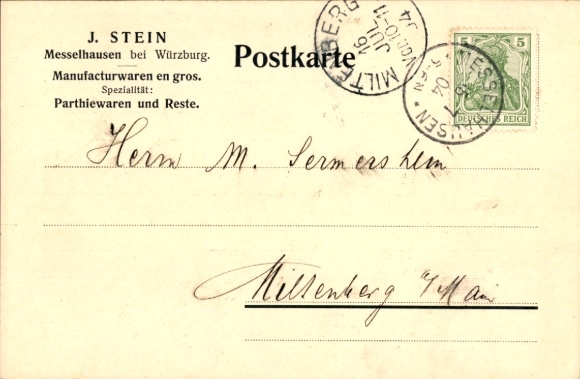 J. STEIN
Messelhausen bei Würzburg.
Manufacturwaren en gros.
Spezialität:
Parthiewaren und Reste.
Postkarte
MILTENBERG
16
JUL
VOR.10-11
04
MESSELHAUSEN
04
5
DEUTSCHES REICH
Herrn M. Sermersheim
Miltenberg a/Main